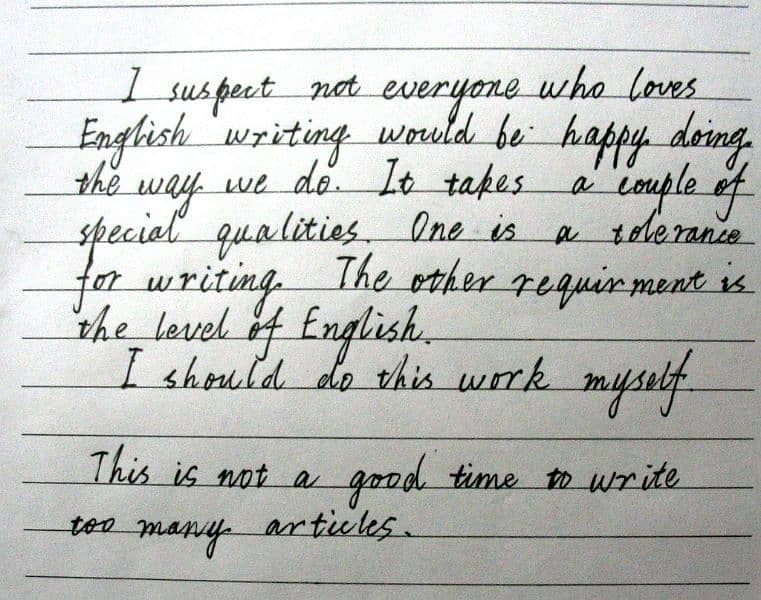 I suspect not everyone who loves
English writing would be happy doing
the way we do. It takes a couple of
special qualities. One is a tolerance
for writing. The other requirment is
the level of English.
I should do this work myself.
This is not a good time to write
too many articles.